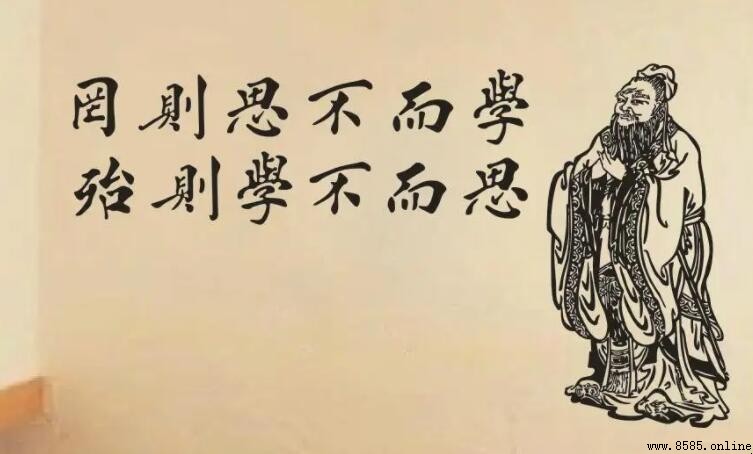 學而不思則罔
思而不學則殆
www.8585.online